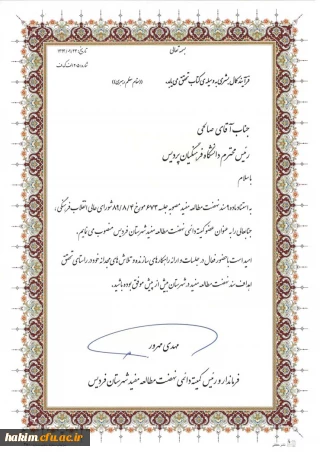 بسمه تعالی
تاریخ:
شماره:
فرآیند کمال بشری به وسیله‌ی کتاب تحقق می‌یابد.
(مقام معظم رهبری)
جناب آقای صالحی
رئیس محترم دانشگاه فرهنگیان پردیس
با سلام
به استناد ماده ۹ سند نهضت مطالعه مفید مصوبه جلسه ۶۷۳ مورخ ۸۹/۸/۴ شورای عالی انقلاب فرهنگی،
جنابعالی را به عنوان عضو کمیته دائمی نهضت مطالعه مفید شهرستان فردیس منصوب می نمایم.
امید است با حضور فعال در جلسات و ارائه راهکارهای سازنده و تلاش های مجدانه خود در راستای تحقق
اهداف سند نهضت مطالعه مفید در شهرستان بیش از پیش موفق بوده باشید.
مهدی مهرور
فرماندار و رئیس کمیته دائمی نهضت مطالعه مفید شهرستان فردیس
hakim.cfu.ac.ir